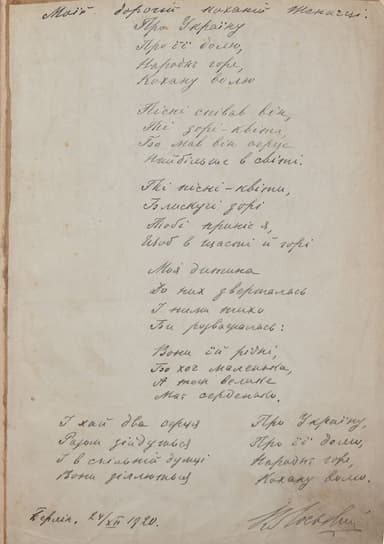 Моїй дорогій коханій Женьчці.
Про Україну
Про її долю,
Народнє горе,
Кохану волю
Пісні співав він,
Ті зорі-квіти,
Бо мав він серце
Найбільше в світі.
Ті пісні-квіти,
Блискучі зорі
Тобі приніс я,
Щоб в щасті й горі
Моя дитина
До них зверталась
І ними тихо
Би розважалась:
Вони їй рідні,
Бо хоч маленька,
А теж велике
Має серденько.
І хай два серця
Разом зійдуться
І в спільній думці
Вони зіллються
Про Україну,
Про її долю,
Народнє горе,
Кохану волю.
Берлін. 24/XII 1920.